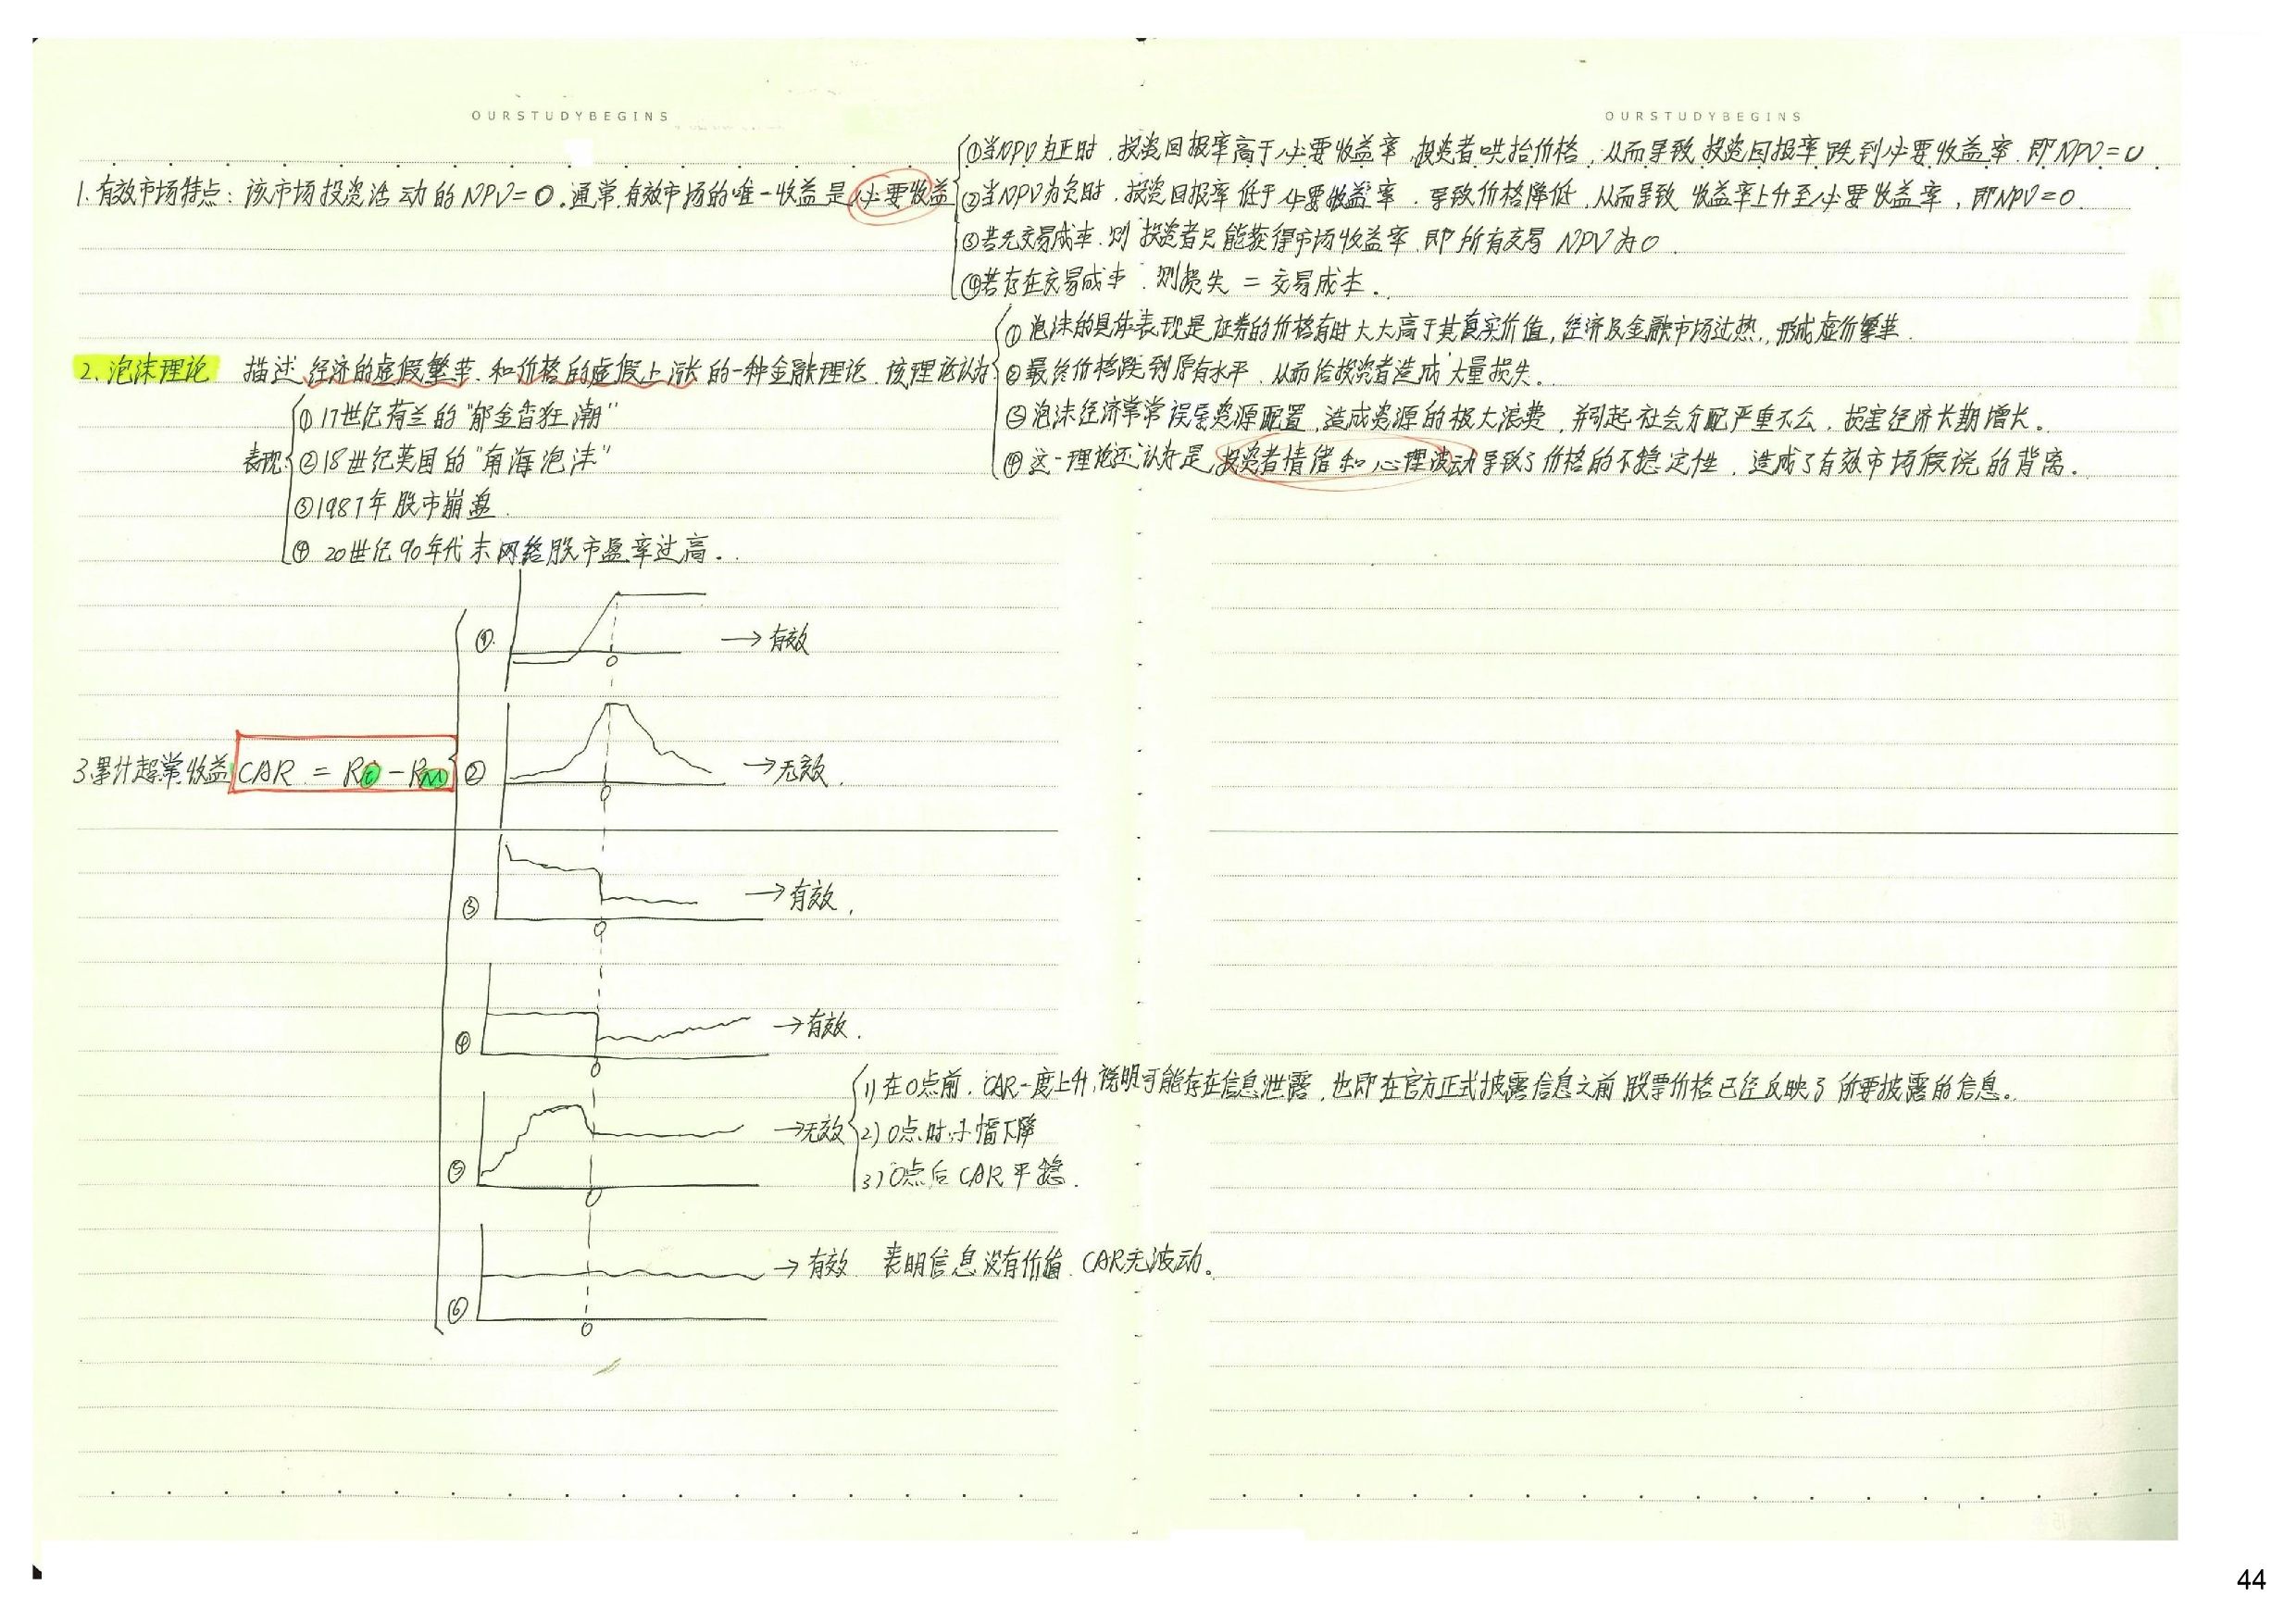 OURSTUDYBEGINS
OURSTUDYBEGINS
1.有效市场特点：该市场投资活动的NPV=0.通常,有效市场的唯一收益是必要收益
①当NPV为正时,投资回报率高于必要收益率,投资者哄抬价格,从而导致投资回报率跌到必要收益率.即NPV=0.
②当NPV为负时,投资回报率低于必要收益率.导致价格降低,从而导致收益率上升至必要收益率,即NPV=0.
③若无交易成本.则投资者只能获得市场收益率.即所有交易NPV为0.
④若存在交易成本.则损失=交易成本.
2.泡沫理论 描述经济的虚假繁荣.和价格的虚假上涨的一种金融理论.该理论认为
①泡沫的具体表现是证券的价格有时大大高于其真实价值,经济及金融市场过热.,形成虚价繁荣.
②最终价格跌到原有水平.从而给投资者造成大量损失.
③泡沫经济常常误导资源配置,造成资源的极大浪费,并引起社会分配严重不公.损害经济长期增长.
④这一理论还认为是,投资者情绪和心理波动导致了价格的不稳定性,造成了有效市场假说的背离.
表现
①17世纪荷兰的"郁金香狂潮"
②18世纪英国的"南海泡沫"
③1987年股市崩盘.
④20世纪90年代末网络股市盈率过高..
3.累计超常收益 CAR = Ri - RM
① 0 →有效
② 0 →无效.
③ 0 →有效.
④ 0 →有效.
⑤ 0 →无效
1)在0点前.CAR一度上升,说明可能存在信息泄露,也即在官方正式披露信息之前股票价格已经反映了所要披露的信息.
2)0点时小幅下降
3)0点后CAR平稳.
⑥ 0 →有效 表明信息没有价值.CAR无波动.
44